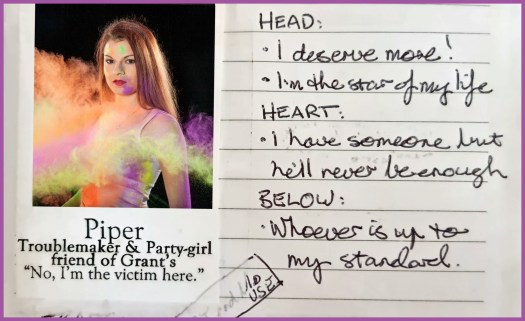 Piper
Troublemaker & Party-girl
friend of Grant's
"No, I'm the victim here."
HEAD:
· I deserve more!
· I'm the star of my life
HEART:
· I have someone but
he'll never be enough
BELOW:
· Whoever is up to
my standard.
USE